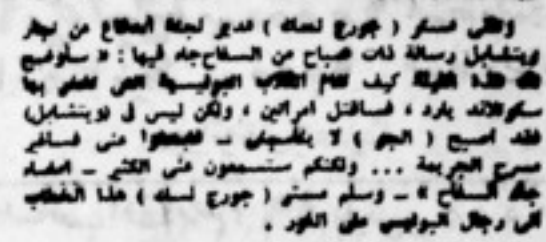 وتلقى مستر ( جورج لسك ) مدير لجنة الدفاع عن تجار
ويتشابل رسالة ذات صباح من السفاح جاء فيها : « سأوضح
لك هذه الليلة كيف تنام الكلاب البوليسية التي تفخر بها
سكوتلاند يارد ، فسأقتل امرأتين ، ولكن ليس في (ويتشابل)
فقد أصبح ( الجو ) لا يلائمني – فابحثوا عني في غير
مسرح الجريمة ... ولكنكم ستسمعون عني الكثير – امضاء
جاك السفاح » – وسلم مستر ( جورج لسك ) هذا الخطاب
الى رجال البوليس على الفور .